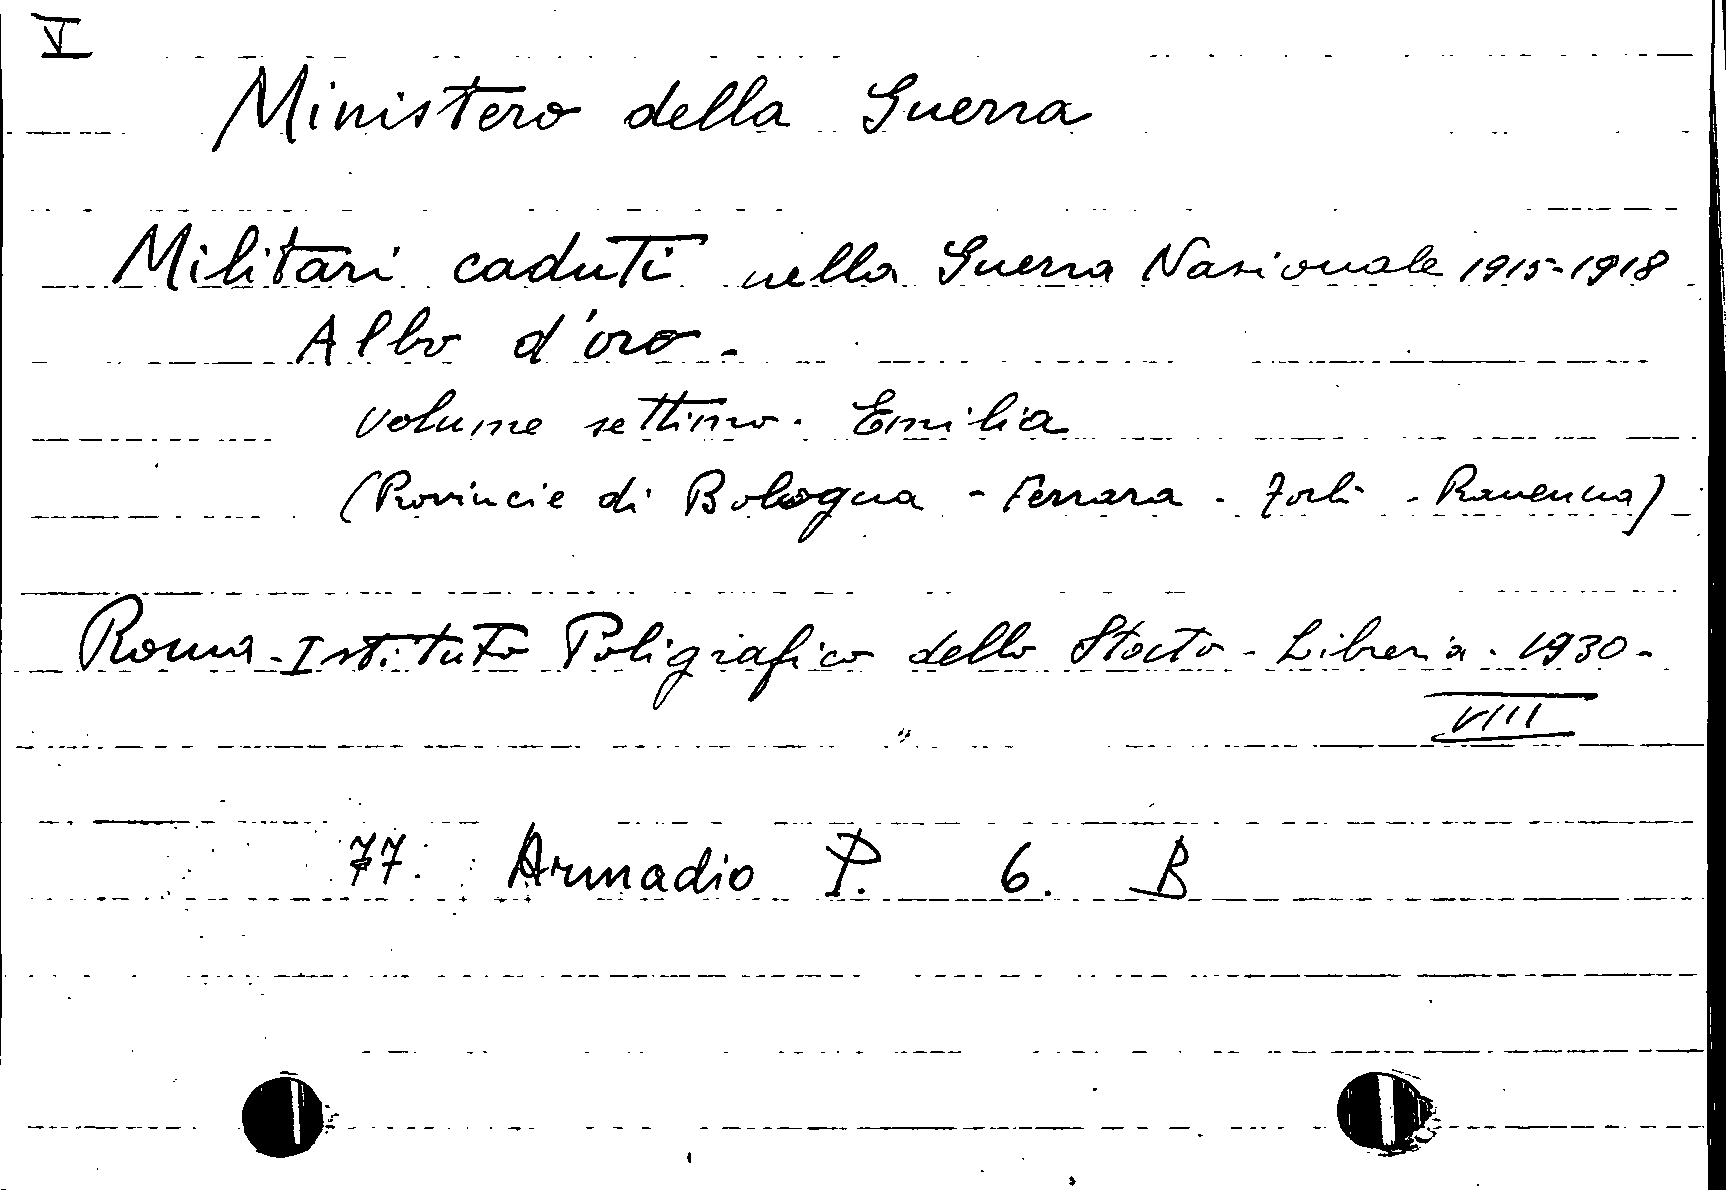 V
Ministero della Guerra
Militari caduti nella Guerra Nazionale 1915-1918
Albo d'oro.
volume settimo. Emilia
(Provincie di Bologna - Ferrara - Forlì - Ravenna)
Roma - Istituto Poligrafico dello Stato - Libreria. 1930-
VIII
77. Armadio P. 6. B